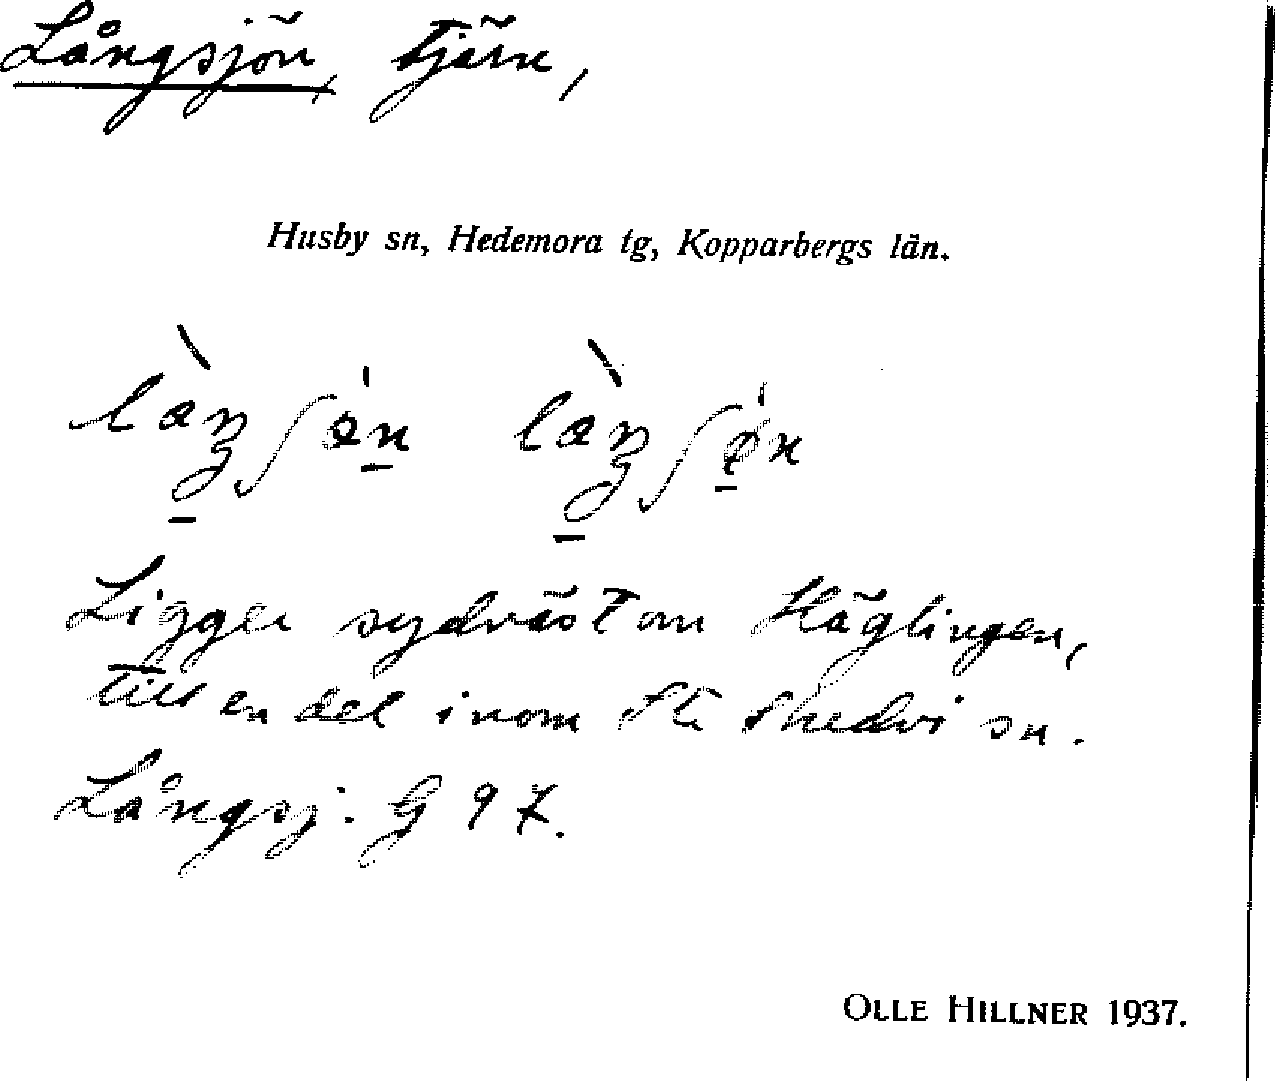 Långsjön, tjärn,
Husby sn, Hedemora tg, Kopparbergs län.
Ligger sydväst om Häglingen,
till en del inom St. Skedvi sn.
Långsj: G 97.
OLLE HILLNER 1937.